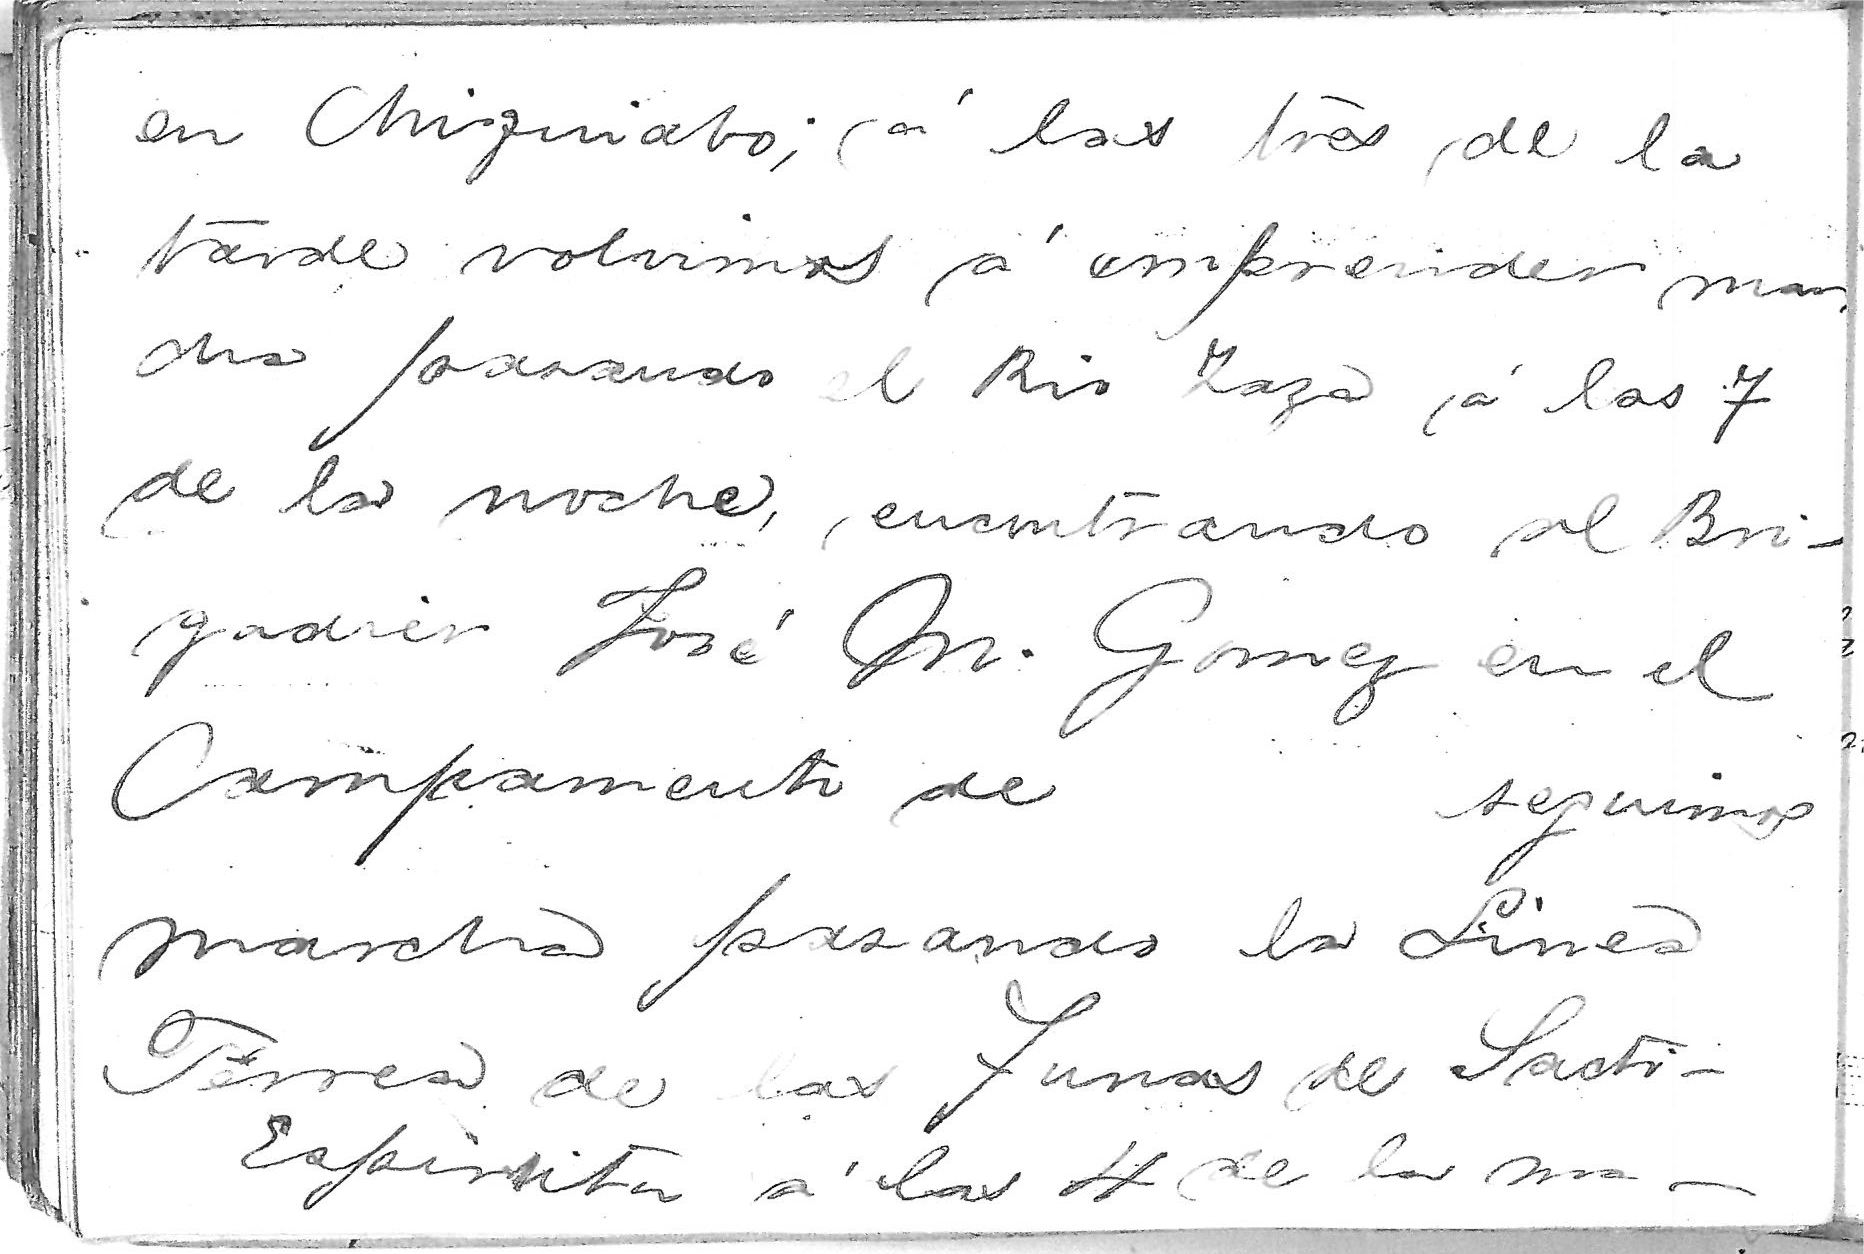 en Chizquiabo; á las tres de la
tarde volvimos á emprender mar
cha pasando el Rio Zaza á las 7
de la noche, encontrando al Bri-
gadier José M. Gomez en el
Campamento de seguimos
marcha pasando la Linea
Ferrea de las Tunas de Sacti-
Espiritu á las 4 de la ma-